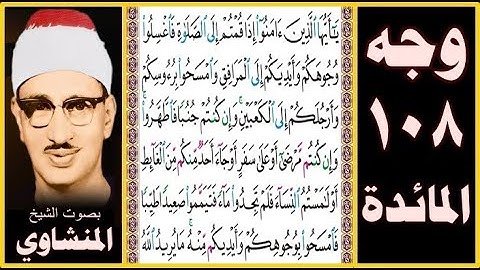 وجه
١٠٨
المائدة
يَٰٓأَيُّهَا ٱلَّذِينَ ءَامَنُوٓا۟ إِذَا قُمْتُمْ إِلَى ٱلصَّلَوٰةِ فَٱغْسِلُوا۟
وُجُوهَكُمْ وَأَيْدِيَكُمْ إِلَى ٱلْمَرَافِقِ وَٱمْسَحُوا۟ بِرُءُوسِكُمْ
وَأَرْجُلَكُمْ إِلَى ٱلْكَعْبَيْنِ ۚ وَإِن كُنتُمْ جُنُبًا فَٱطَّهَّرُوا۟ ۚ
وَإِن كُنتُم مَّرْضَىٰٓ أَوْ عَلَىٰ سَفَرٍ أَوْ جَآءَ أَحَدٌ مِّنكُم مِّنَ ٱلْغَآئِطِ
أَوْ لَٰمَسْتُمُ ٱلنِّسَآءَ فَلَمْ تَجِدُوا۟ مَآءً فَتَيَمَّمُوا۟ صَعِيدًا طَيِّبًا
فَٱمْسَحُوا۟ بِوُجُوهِكُمْ وَأَيْدِيكُم مِّنْهُ ۚ مَا يُرِيدُ ٱللَّهُ
بصوت الشيخ
المنشاوي